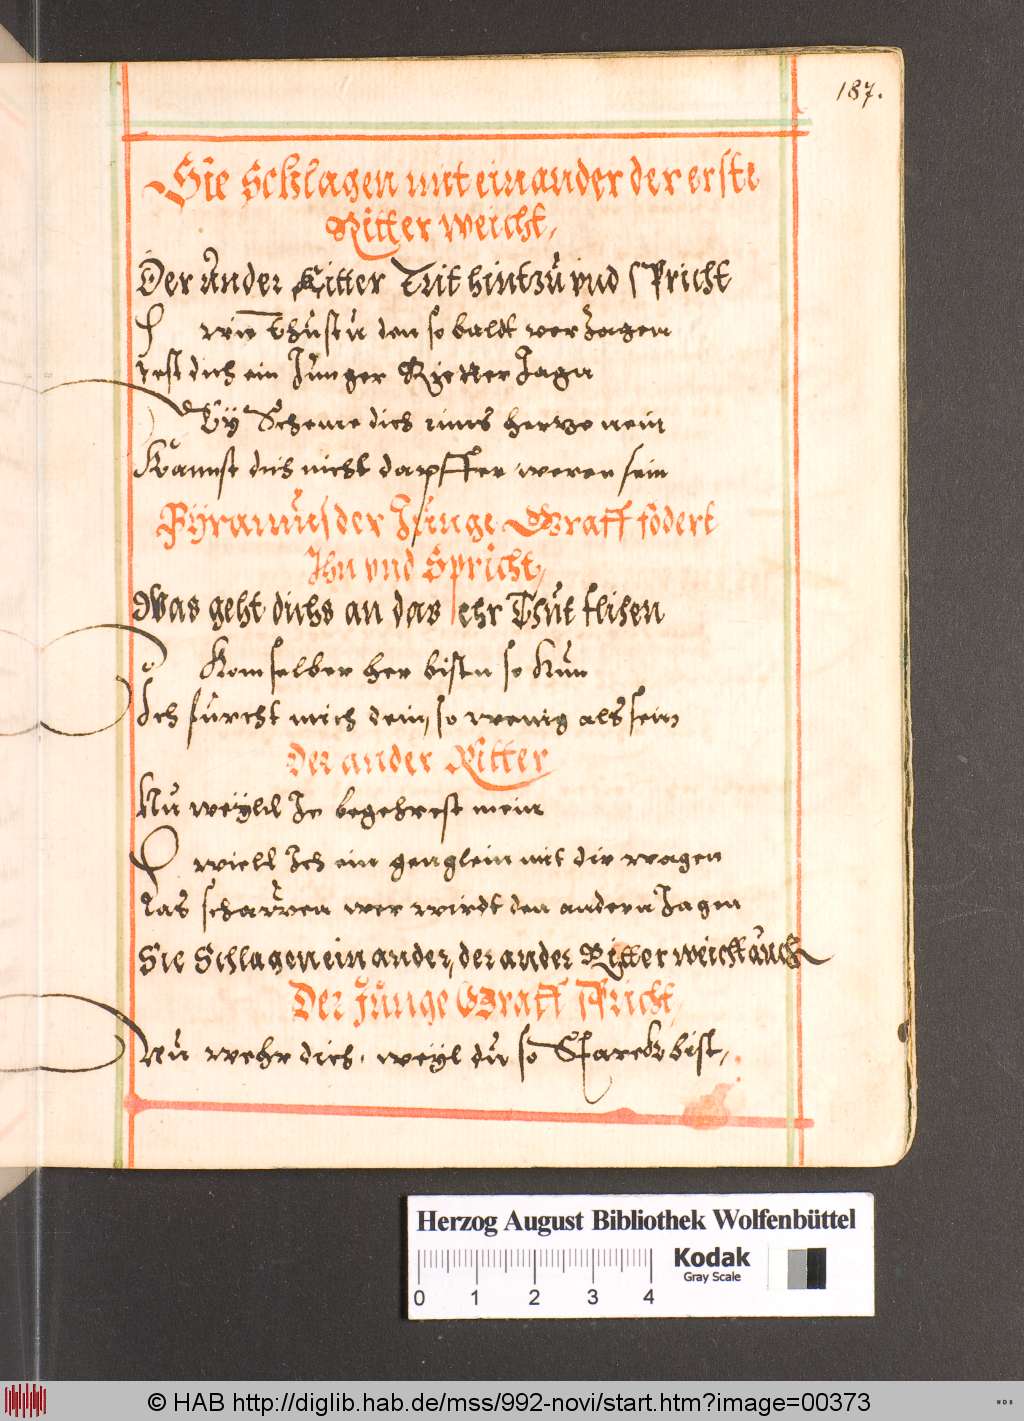 187.
Sie Schlagen mit einander der erste
Ritter weicht,
Der Ander Ritter Trit hintzu vnd spricht
wie Thustu den so baldt verzagen
Lest dich ein Junger Rietter Jagn
Ey Scheme dich ins hertze nein
Kannst dich nicht dapffer weren fein
Pyramus der Junge Graff fodert
Ihn vnd Spricht,
Was geht dichs an das ehr Thut flihen
Kom selber her bistu so Kun
Ich furcht mich dein, so wenig als sein
Der ander Ritter
Nu weyll Je begehrest mein
wiell Ich ein genglein mit dir wagen
Las scharren wer wirdt den andern Jagen
Sie Schlagen ein ander, der ander Ritter weicht auch
Der Junge Graff Spricht,
Nu wehr dich, weyl du so Starck bist,
Herzog August Bibliothek Wolfenbüttel
Kodak
Gray Scale
0 1 2 3 4
© HAB http://diglib.hab.de/mss/992-novi/start.htm?image=00373